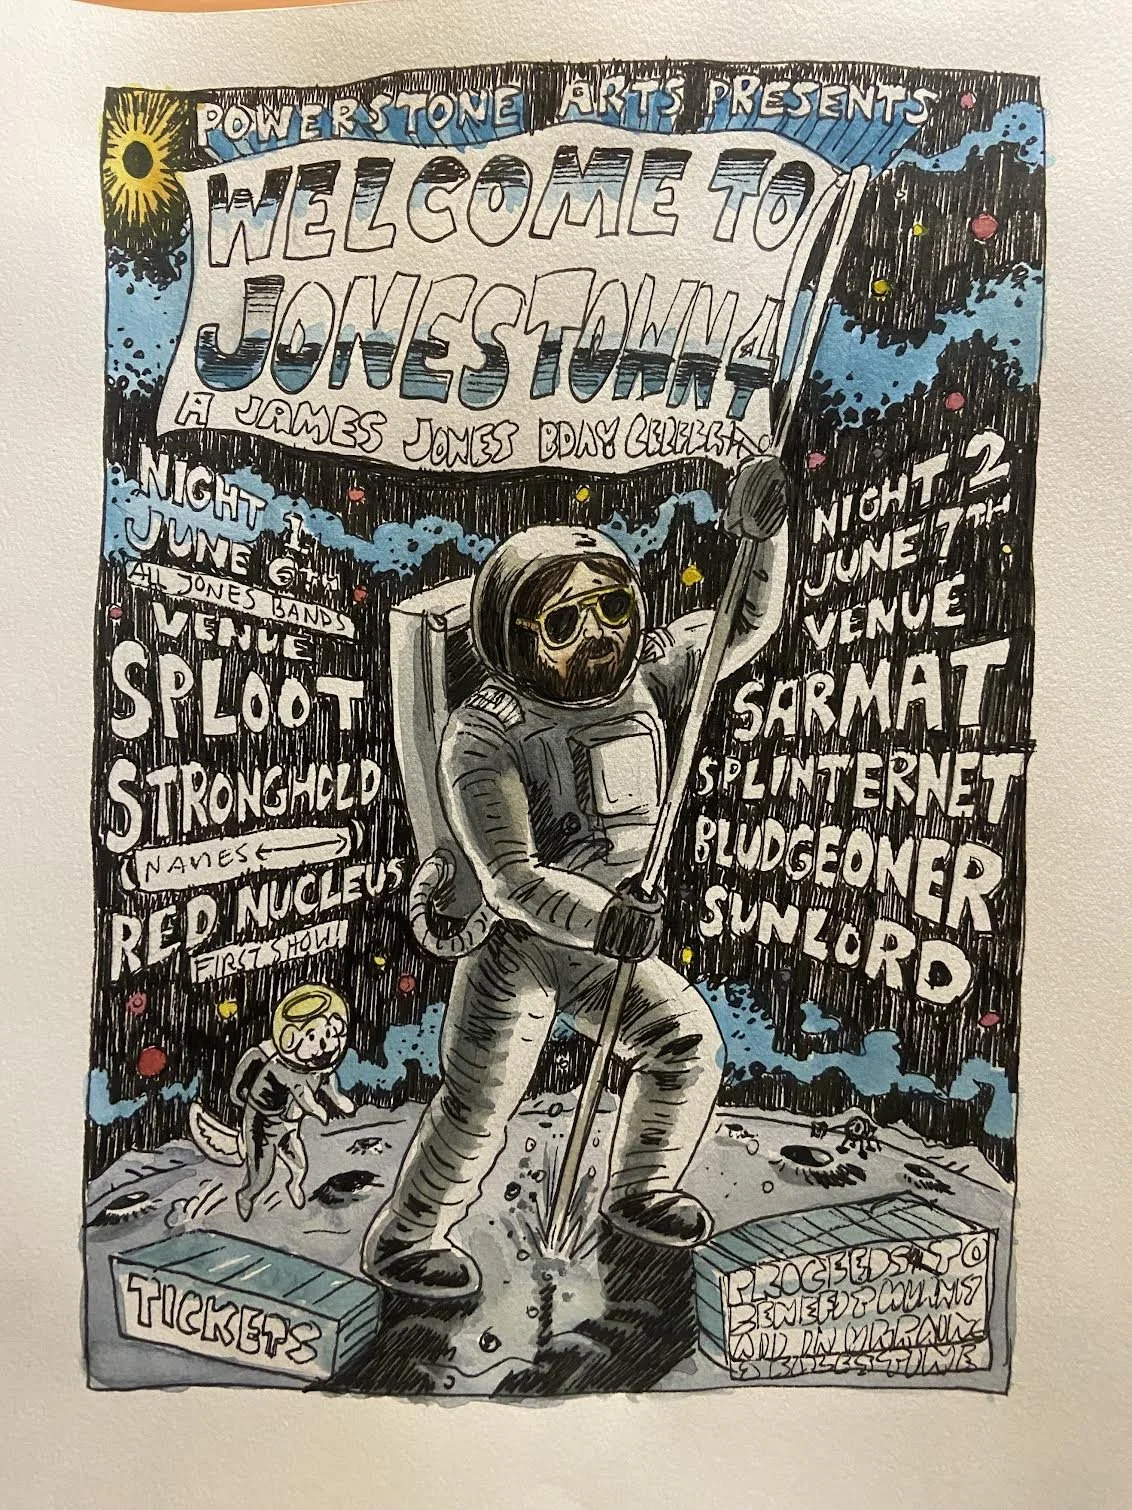 POWERSTONE ARTS PRESENTS
WELCOME TO
JONESTOWN 4
A JAMES JONES BDAY
NIGHT 1
JUNE 6TH
ALL JONES BANDS
VENUE
SPLOOT
STRONGHOLD
(NAMES)
RED NUCLEUS
FIRST SHOW!
NIGHT 2
JUNE 7TH
VENUE
SARMAT
SPLINTERNET
BLUDGEONER
SUNLORD
TICKETS
PROCEEDS TO
BENEFIT
AID IN
& PALESTINE